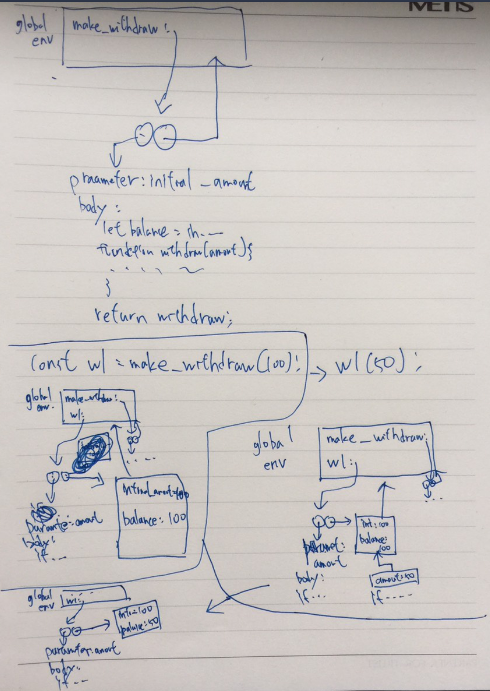 METIS
global
env
make_withdraw:
praameter: initial_amount
body:
let balance = in....
function withdraw(amount){
.....
}
return withdraw;
const w1 = make_withdraw(100);
→ w1(50);
global
env.
make_withdraw:
w1:
....
initial_amount=100
balance: 100
parameter: amount
body:
if ...
global
env
make_withdraw:
w1:
...
init: 100
balance:
100
amount
body:
if ...
amount=50
if .....
global
env
w1:
init=100
balance: 50
parameter: amount
body:
if ...